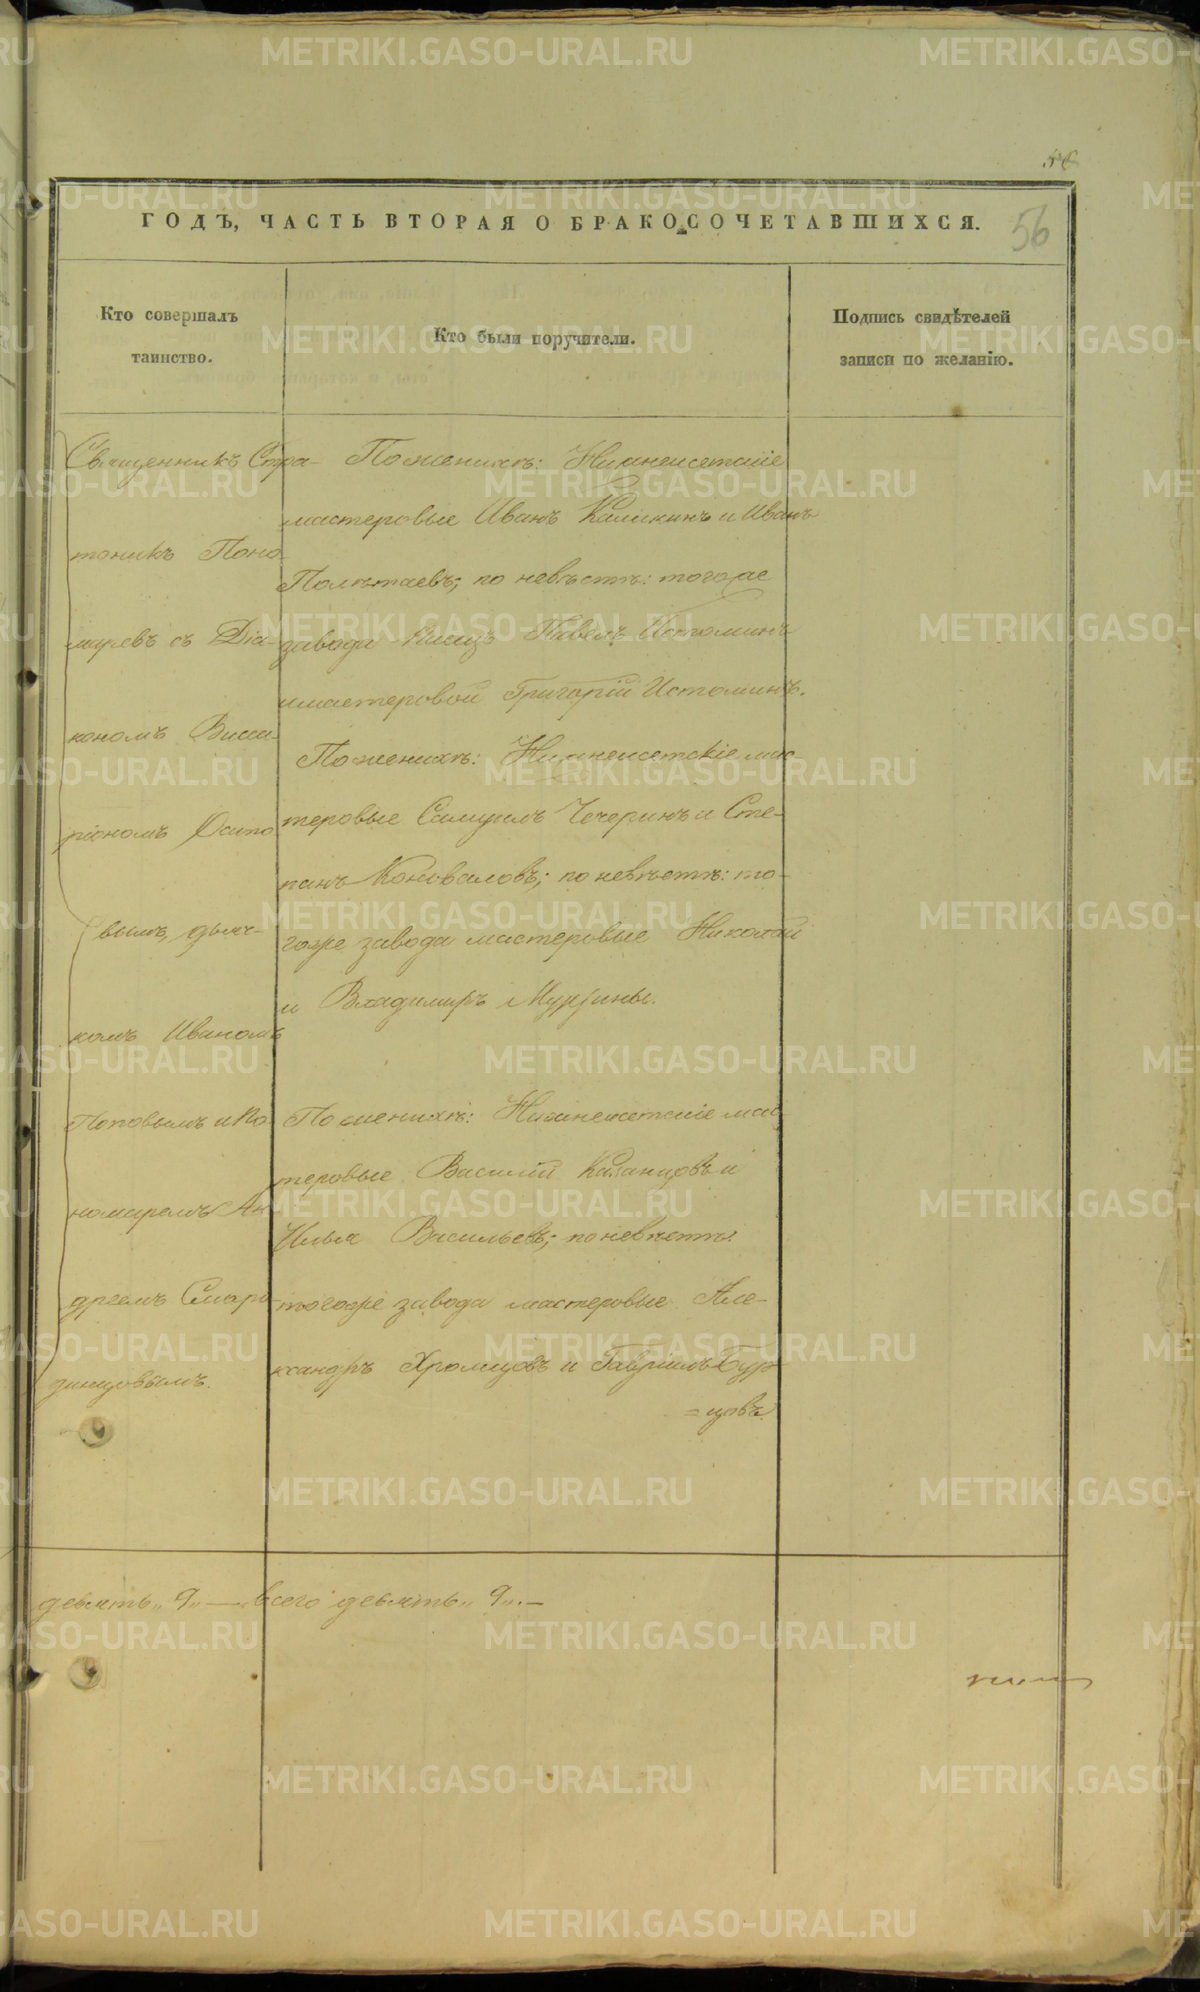 56
ГОДЪ, ЧАСТЬ ВТОРАЯ О БРАКОСОЧЕТАВШИХСЯ.
56
Кто совершалъ
таинство.
Кто были поручители.
Подпись свидѣтелей
записи по желанію.
Священникъ Стра-
тоникъ Поно-
маревъ съ Діа-
кономъ Висса-
ріономъ Осипо-
вымъ, дьяч-
комъ Иваномъ
Поповымъ и По-
номаремъ Ан-
дреемъ Смаро-
динцовымъ.
По женихѣ: Нижнеисетскіе
мастеровые Иванъ Каликинъ и Иванъ
Полѣтаевъ; по невѣстѣ: тогоже
завода писецъ Павелъ Истоминъ
и мастеровой Григорій Истоминъ.
По женихѣ: Нижнеисетскіе мас-
теровые Самуилъ Чечеринъ и Сте-
панъ Коноваловъ; по невѣстѣ: то-
гоже завода мастеровые Николай
и Владимиръ Мурзины.
По женихѣ: Нижнеисетскіе мас-
теровые Василій Казанцовъ и
Илья Васильевъ; по невѣстѣ:
тогоже завода мастеровые Але-
ксандръ Хромцовъ и Гавріилъ Бур-
=цовъ.
девять „9„ — всего девять „9„. —
METRIKI.GASO-URAL.RU